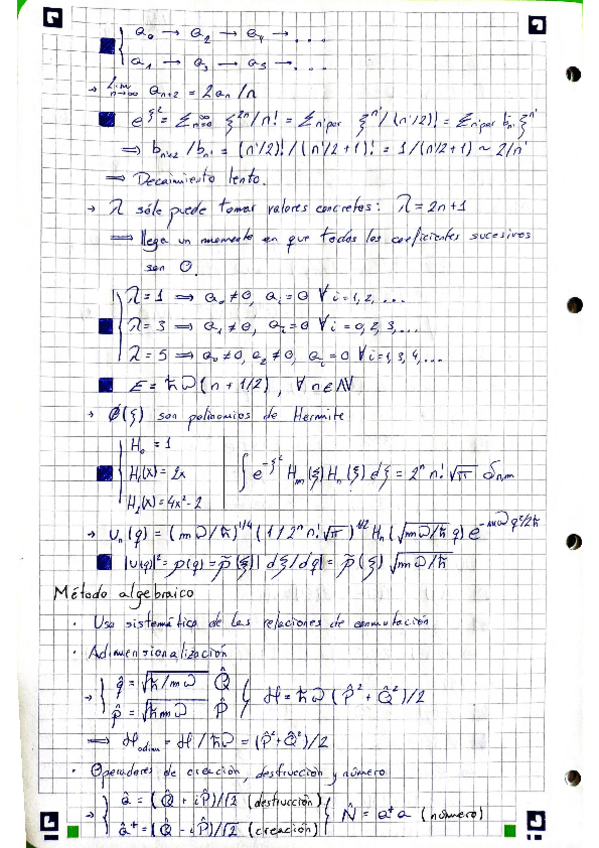 a₀ → a₂ → a₄ → ...
a₁ → a₃ → a₅ → ...
→ Lim n→∞ aₙ₊₂ = 2aₙ/n
e^ξ² = Σₙ₌₀^∞ ξ²ⁿ/n! = Σ n'par ξ^n'/(n'/2)! = Σ n'par bₙ' ξ^n'
⇒ bₙ'₊₂/bₙ' = (n'/2)!/(n'/2+1)! = 1/(n'/2+1) ~ 2/n'
⇒ Decaimiento lento.
→ λ sólo puede tomar valores concretos: λ = 2n+1
⇒ llega un momento en que todos los coeficientes sucesivos
son 0.
λ = 1 ⇒ a₀ ≠ 0, aᵢ = 0 ∀ i = 1, 2, ...
λ = 3 ⇒ a₁ ≠ 0, aᵢ = 0 ∀ i = 0, 2, 3, ...
λ = 5 ⇒ a₀ ≠ 0, a₂ ≠ 0, aᵢ = 0 ∀ i = 1, 3, 4, ...
E = ħω(n + 1/2), ∀ n ∈ ℕ
→ (ξ) son polinomios de Hermite
H₀ = 1
H₁(x) = 2x
∫ e^-ξ² Hₘ(ξ) Hₙ(ξ) dξ = 2ⁿ n! √π δn,m
H₂(x) = 4x² - 2
→ uₙ(q) = (mω/ħ)^1/4 (1/2ⁿ n! √π)^1/2 Hₙ(√mω/ħ q) e^-mωq²/2ħ
|u(q)|² = p(q) = p̃(ξ) |dξ/dq| = p̃(ξ) √mω/ħ
Método algebraico
· Uso sistemático de las relaciones de conmutación
· Adimensionalización
→ q̂ = √ħ/mω Q̂
p̂ = √ħmω P̂
H = ħω(P̂² + Q̂²)/2
⇒ H adim = H/ħω = (P̂² + Q̂²)/2
· Operadores de creación, destrucción y número
→ â = (Q̂ + iP̂)/√2 (destrucción)
â⁺ = (Q̂ - iP̂)/√2 (creación)
N̂ = a⁺a (número)